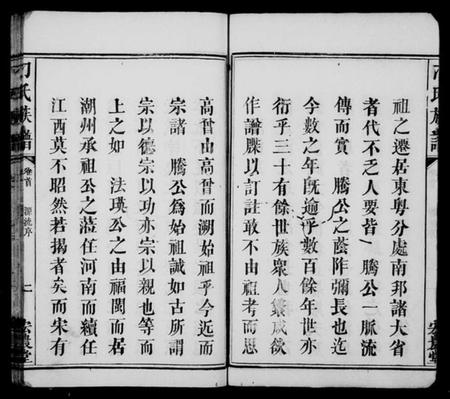 祖之遷居東粵分處南邦諸大省
者代不乏人要皆 騰公一脈流
傳而實 騰公之蔭阼彌長也迄
今數之年既逾乎數百餘年世亦
衍乎三十有餘世族衆人繁咸欲
作譜牒以訂註敢不由祖考而思
高曾由高曾而溯始祖乎今近而
宗諸 騰公爲始祖誠如古所謂
宗以德宗以功亦宗以親也等而
上之如 法瑛公之由福閩而居
潮州承祖公之蒞任河南而續任
江西莫不昭然若揭者矣而朱有
刁氏族譜
卷首
源流序
二